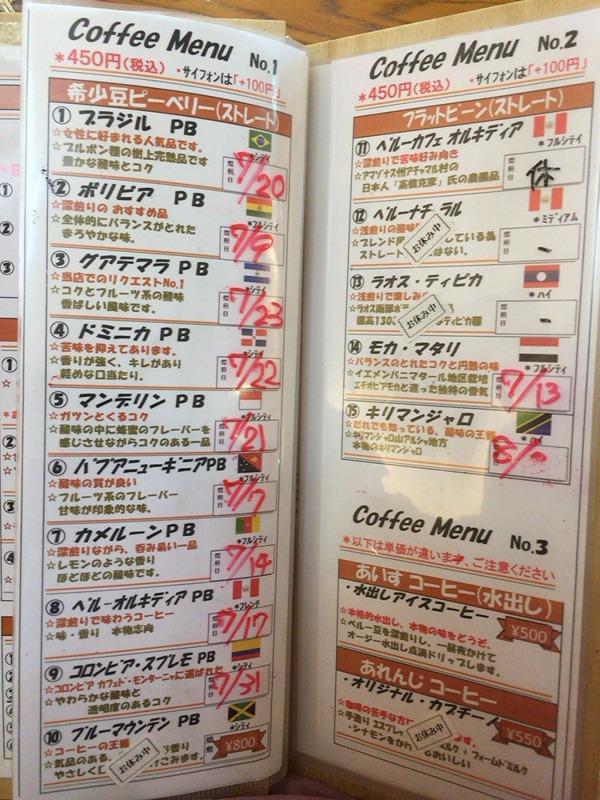 Coffee Menu No.1
*450円(税込) ・サイフォンは「+100円」
希少豆ピーベリー(ストレート)
① ブラジル PB
*シティ
☆女性に好まれる人気品です。
☆ブルボン種の樹上完熟品です
豊かな酸味とコク
焙煎日 7/20
② ボリビア PB
*フルシティ
☆深煎りの おすすめ品
☆全体的にバランスがとれた
まろやかな味。
焙煎日 7/9
③ グアテマラ PB
*シティ
☆当店でのリクエストNo.1
☆コクとフルーツ系の酸味
香ばしい風味です。
焙煎日 7/23
④ ドミニカ PB
☆苦味を抑えてあります。
☆香りが強く、キレがあり
軽めな口当たり。
焙煎日 7/22
⑤ マンデリン PB
*フルシティ
☆ガツンとくるコク
☆酸味の中に蜂蜜のフレーバーを
感じさせながらコクのある一品
焙煎日 7/21
⑥ パプアニューギニアPB
*フルシティ
☆酸味の質が良い
☆フルーツ系のフレーバー
甘味が印象的な味。
焙煎日 7/7
⑦ カメルーンPB
*フルシティ
☆深煎りながら、呑みあい一品
☆レモンのような香り
ほどほどの酸味です。
焙煎日 7/14
⑧ ペルーオルキディア PB
*フレンチ
☆深煎りで味わうコーヒー
☆味・香り 本物志向
焙煎日 7/17
⑨ コロンビア・スプレモ PB
*シティ
☆コロンビア カフェド・モンターニャに選ばれた
☆やわらかな酸味と
透明感のあるコク
焙煎日 7/31
⑩ ブルーマウンテン PB
*シティ
☆コーヒーの王様
☆気品のある、 香り
やさしく 込みます。
お休み中
焙煎 ¥800
Coffee Menu No.2
*450円(税込) ・サイフォンは「+100円」
フラットビーン(ストレート)
⑪ ペルーカフェ オルキディア
*フルシティ
☆深煎りで苦味好み向き
☆アマゾナス州アチャマル村の
日本人「高橋克彦」氏の農園品
焙煎日 休
⑫ ペルーナチュラル
*ミディアム
☆浅煎りの酸味
☆ブレンド用 している為
ストレート はない。
お休み中
焙煎日 -
⑬ ラオス・ティピカ
*ハイ
☆浅煎りで楽しみ
☆ラオス南部
標高130 ティピカ種
お休み中
焙煎日 -
⑭ モカ・マタリ
*フルシティ
☆バランスのとれたコクと円熟の味
☆イエメンバニマタール地区栽培
エチオピアモカと違った独特の香気
焙煎日 7/13
⑮ キリマンジャロ
☆だれでも知っている、酸味の王様
☆キリマンジャロ山アルシャ地方
本物のキリマンジャロ
焙煎日
Coffee Menu No.3
*以下は単価が違います、ご注意ください
あいす コーヒー(水出し)
・水出しアイスコーヒー
☆本格的水出し、本物の味をどうぞ。
☆ペルー豆を深煎りし、一昼夜かけて
オージー水出し点滴ドリップスします。
¥500
あれんじ コーヒー
・オリジナル・カプチーノ
☆珈琲の苦手な方に す。
☆手造り エスプレッ ミルク + フォームドミルク
・シナモンをかけ おいしい
お休み中
¥550